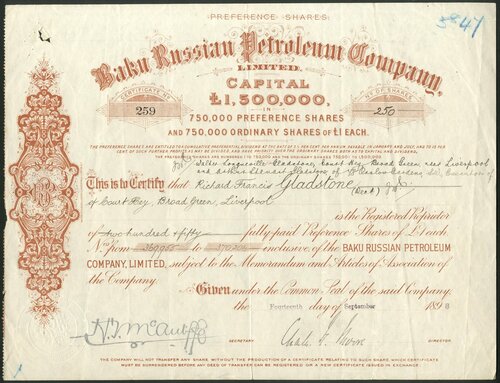 PREFERENCE SHARES
5847
Baku Russian Petroleum Company,
LIMITED.
CERTIFICATE No
259
No OF SHARES
250
CAPITAL
£1,500,000,
IN
750,000 PREFERENCE SHARES
AND 750,000 ORDINARY SHARES OF £1 EACH.
THE PREFERENCE SHARES ARE ENTITLED TO A CUMULATIVE PREFERENTIAL DIVIDEND AT THE RATE OF 5½ PER CENT. PER ANNUM, PAYABLE IN JANUARY AND JULY, AND TO
CENT OF SUCH FURTHER PROFITS AS MAY BE DIVIDED, AND HAVE PRIORITY OVER THE ORDINARY SHARES BOTH AS TO CAPITAL AND DIVIDEND.
THE PREFERENCE SHARES ARE NUMBERED 1 TO 750,000 AND THE ORDINARY SHARES 750,001 TO 1,500,000.
Longueville Gladstone, Court Hey, Broad Green near Liverpool
and Steuart Gladstone of Carlton Gardens Executors of
This is to Certify that Richard Francis Gladstone (Decd)
of Court Hey Broad Green, Liverpool
is the Registered Proprietor
of Two hundred & fifty fully-paid Preference Shares of £1 each.
Nos from to inclusive of the BAKU RUSSIAN PETROLEUM
COMPANY, LIMITED, subject to the Memorandum and Articles of Association of
the Company.
Given under the Common Seal of the said Company,
the Fourteenth day of September 1898
SECRETARY
DIRECTOR
THE COMPANY WILL NOT TRANSFER ANY SHARE WITHOUT THE PRODUCTION OF A CERTIFICATE RELATING TO SUCH SHARE, WHICH CERTIFICATE
MUST BE SURRENDERED BEFORE ANY DEED OF TRANSFER CAN BE REGISTERED OR A NEW CERTIFICATE ISSUED IN EXCHANGE.